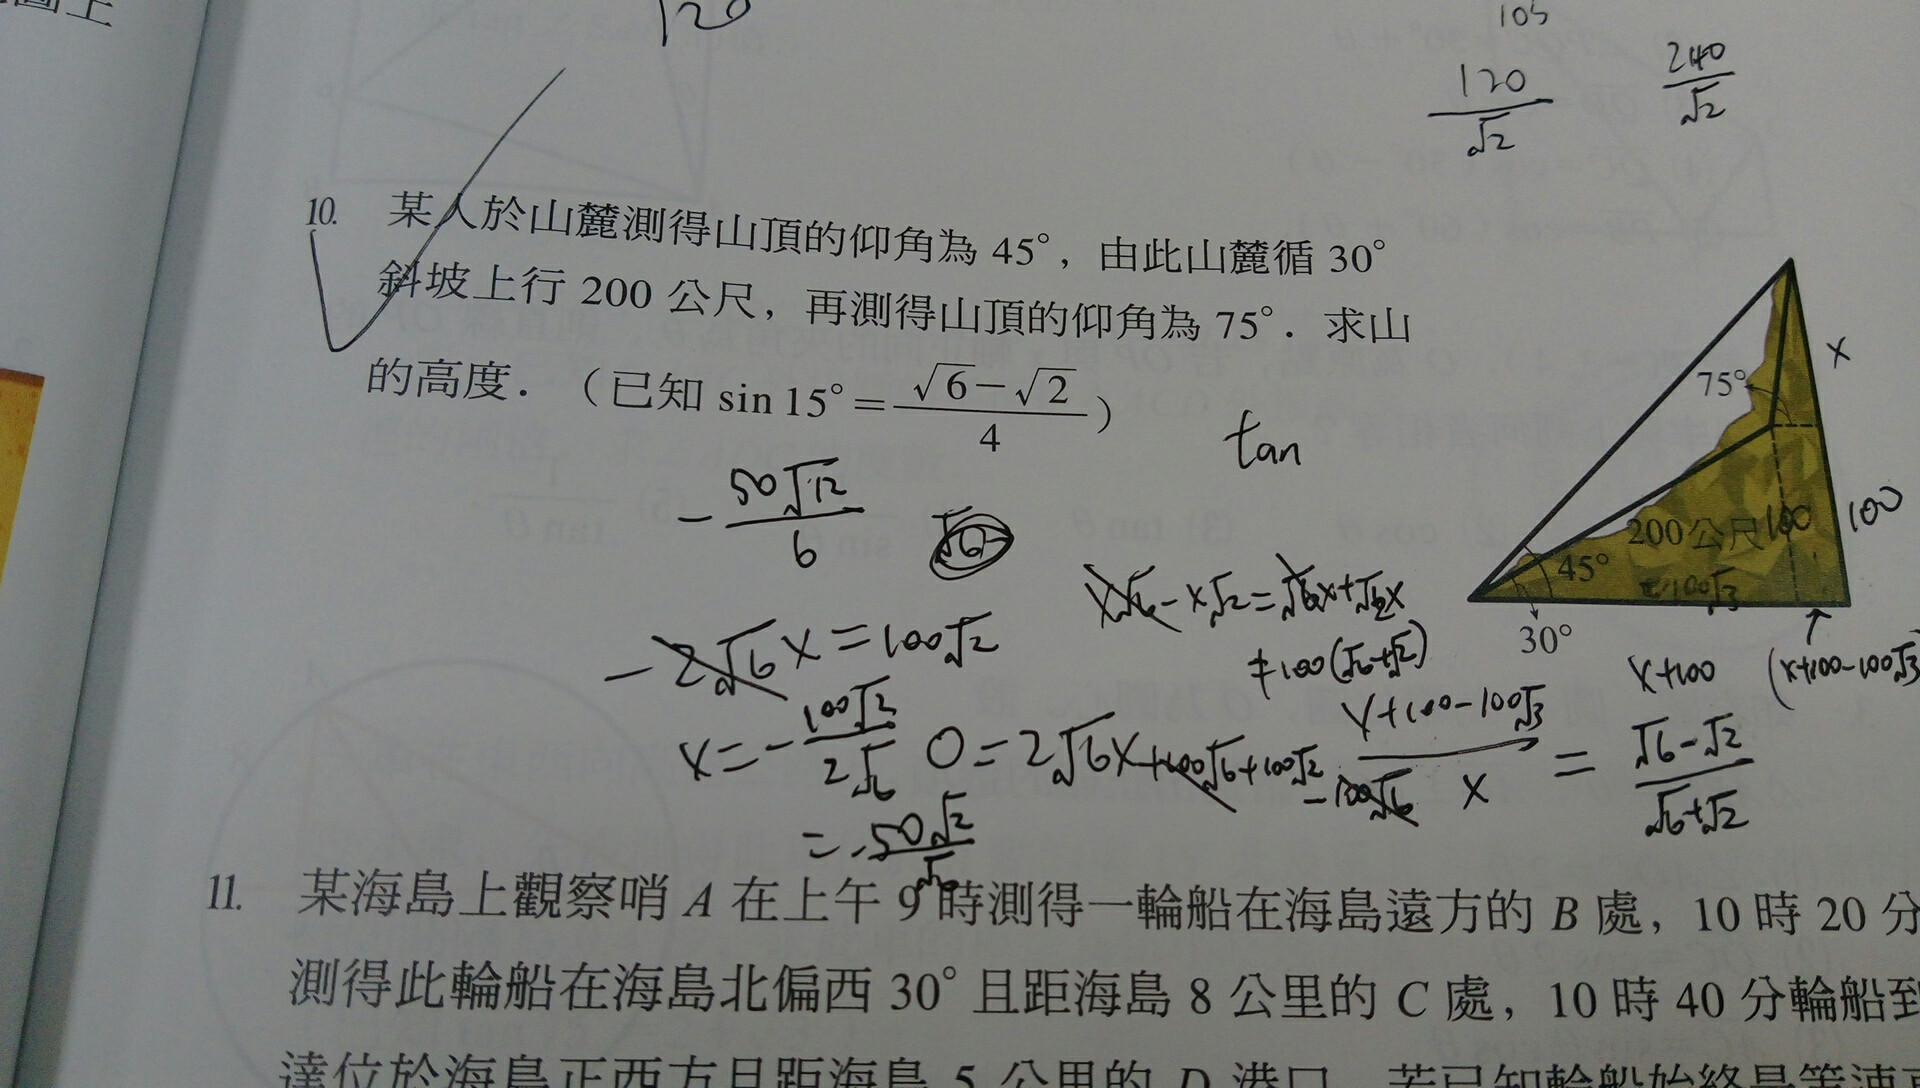 圖上
120
105
120/√2
240/√2
10. 某人於山麓測得山頂的仰角為 45°，由此山麓循 30°
斜坡上行 200 公尺，再測得山頂的仰角為 75°．求山
的高度．（已知 sin 15°＝(√6－√2)/4）
tan
x
75°
200 公尺
100
100
45°
100√3
30°
x+100
(x+100-100√3
-50√12/6
x√6-x√2=√6x+√2x
+100(√6+√2)
-2√6x=100√2
x+100-100√3/x=√6-√2/√6+√2
0=2√6x+100√6+100√2-100√6
x=-100√2/2√6
=-50√2/√6
11. 某海島上觀察哨 A 在上午 9 時測得一輪船在海島遠方的 B 處，10 時 20 分
測得此輪船在海島北偏西 30° 且距海島 8 公里的 C 處，10 時 40 分輪船到
達位於海島正西方且距海島 5 公里的 D 港口．若已知輪船始終是等速